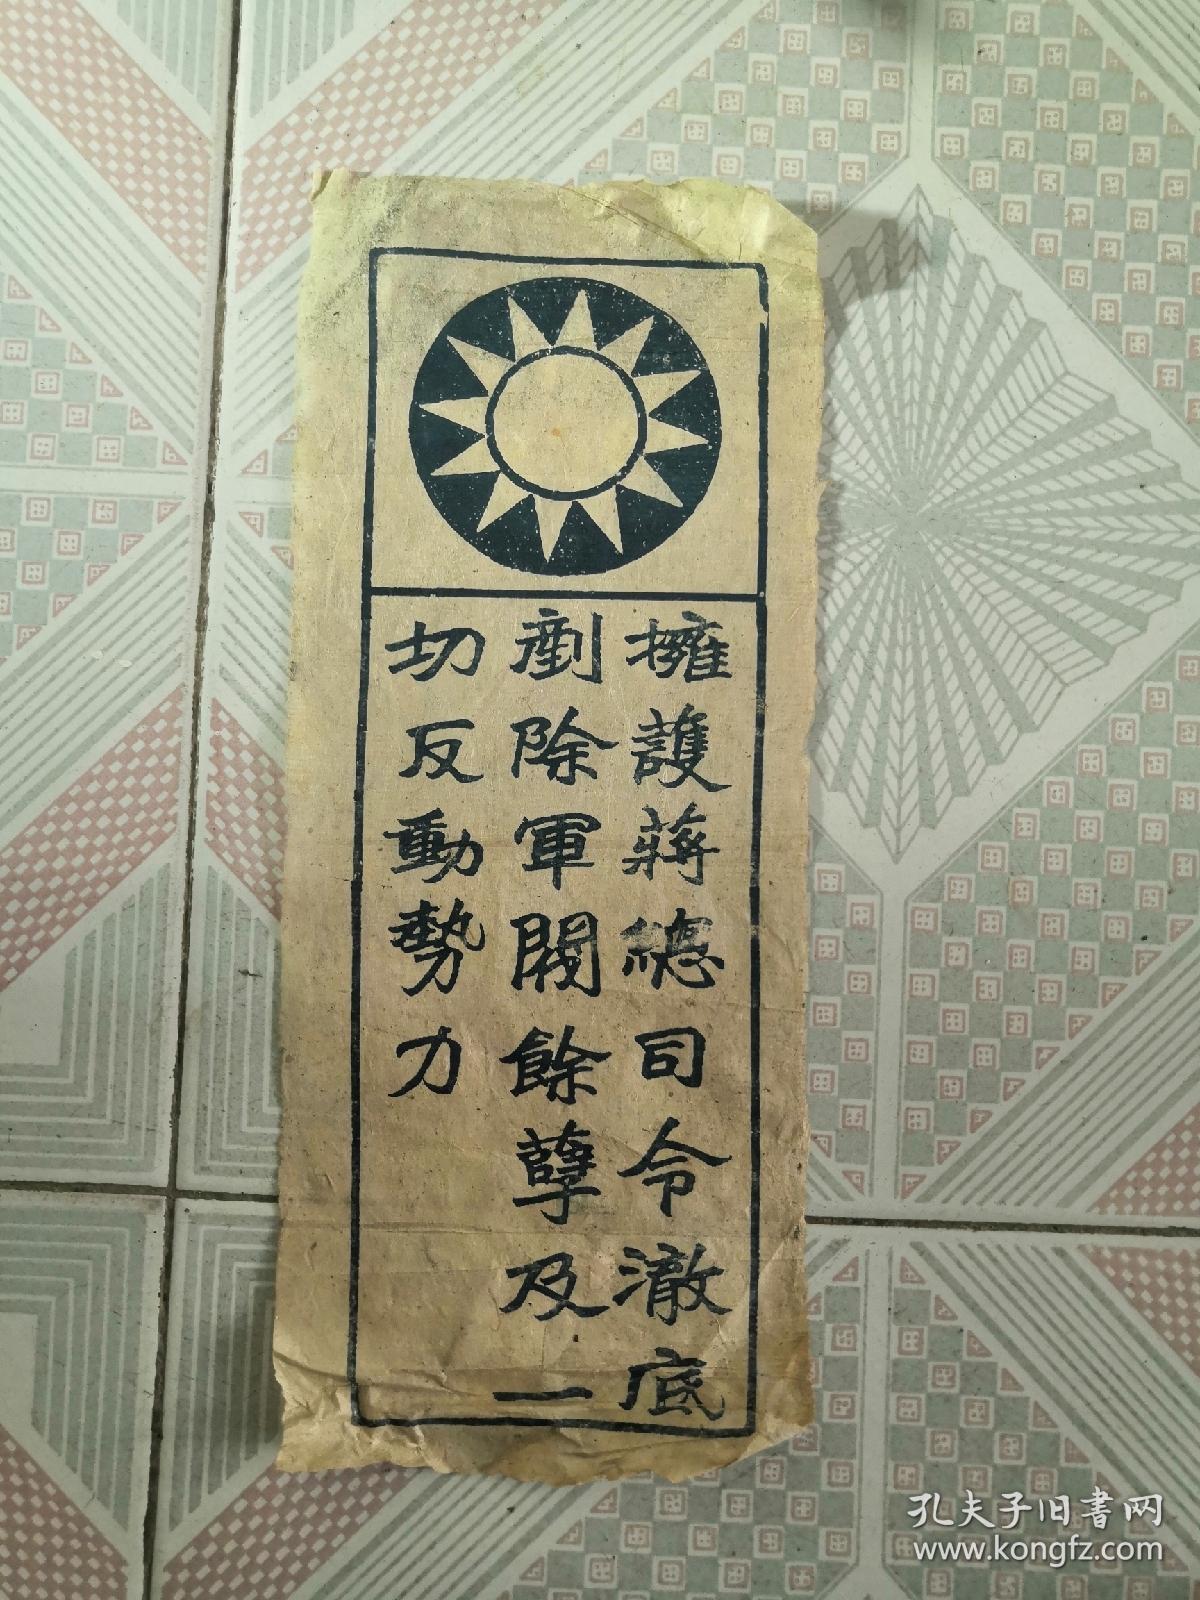 擁護蔣總司令澈底
剷除軍閥餘孽及一
切反動勢力
孔夫子旧書网
www.kongfz.com